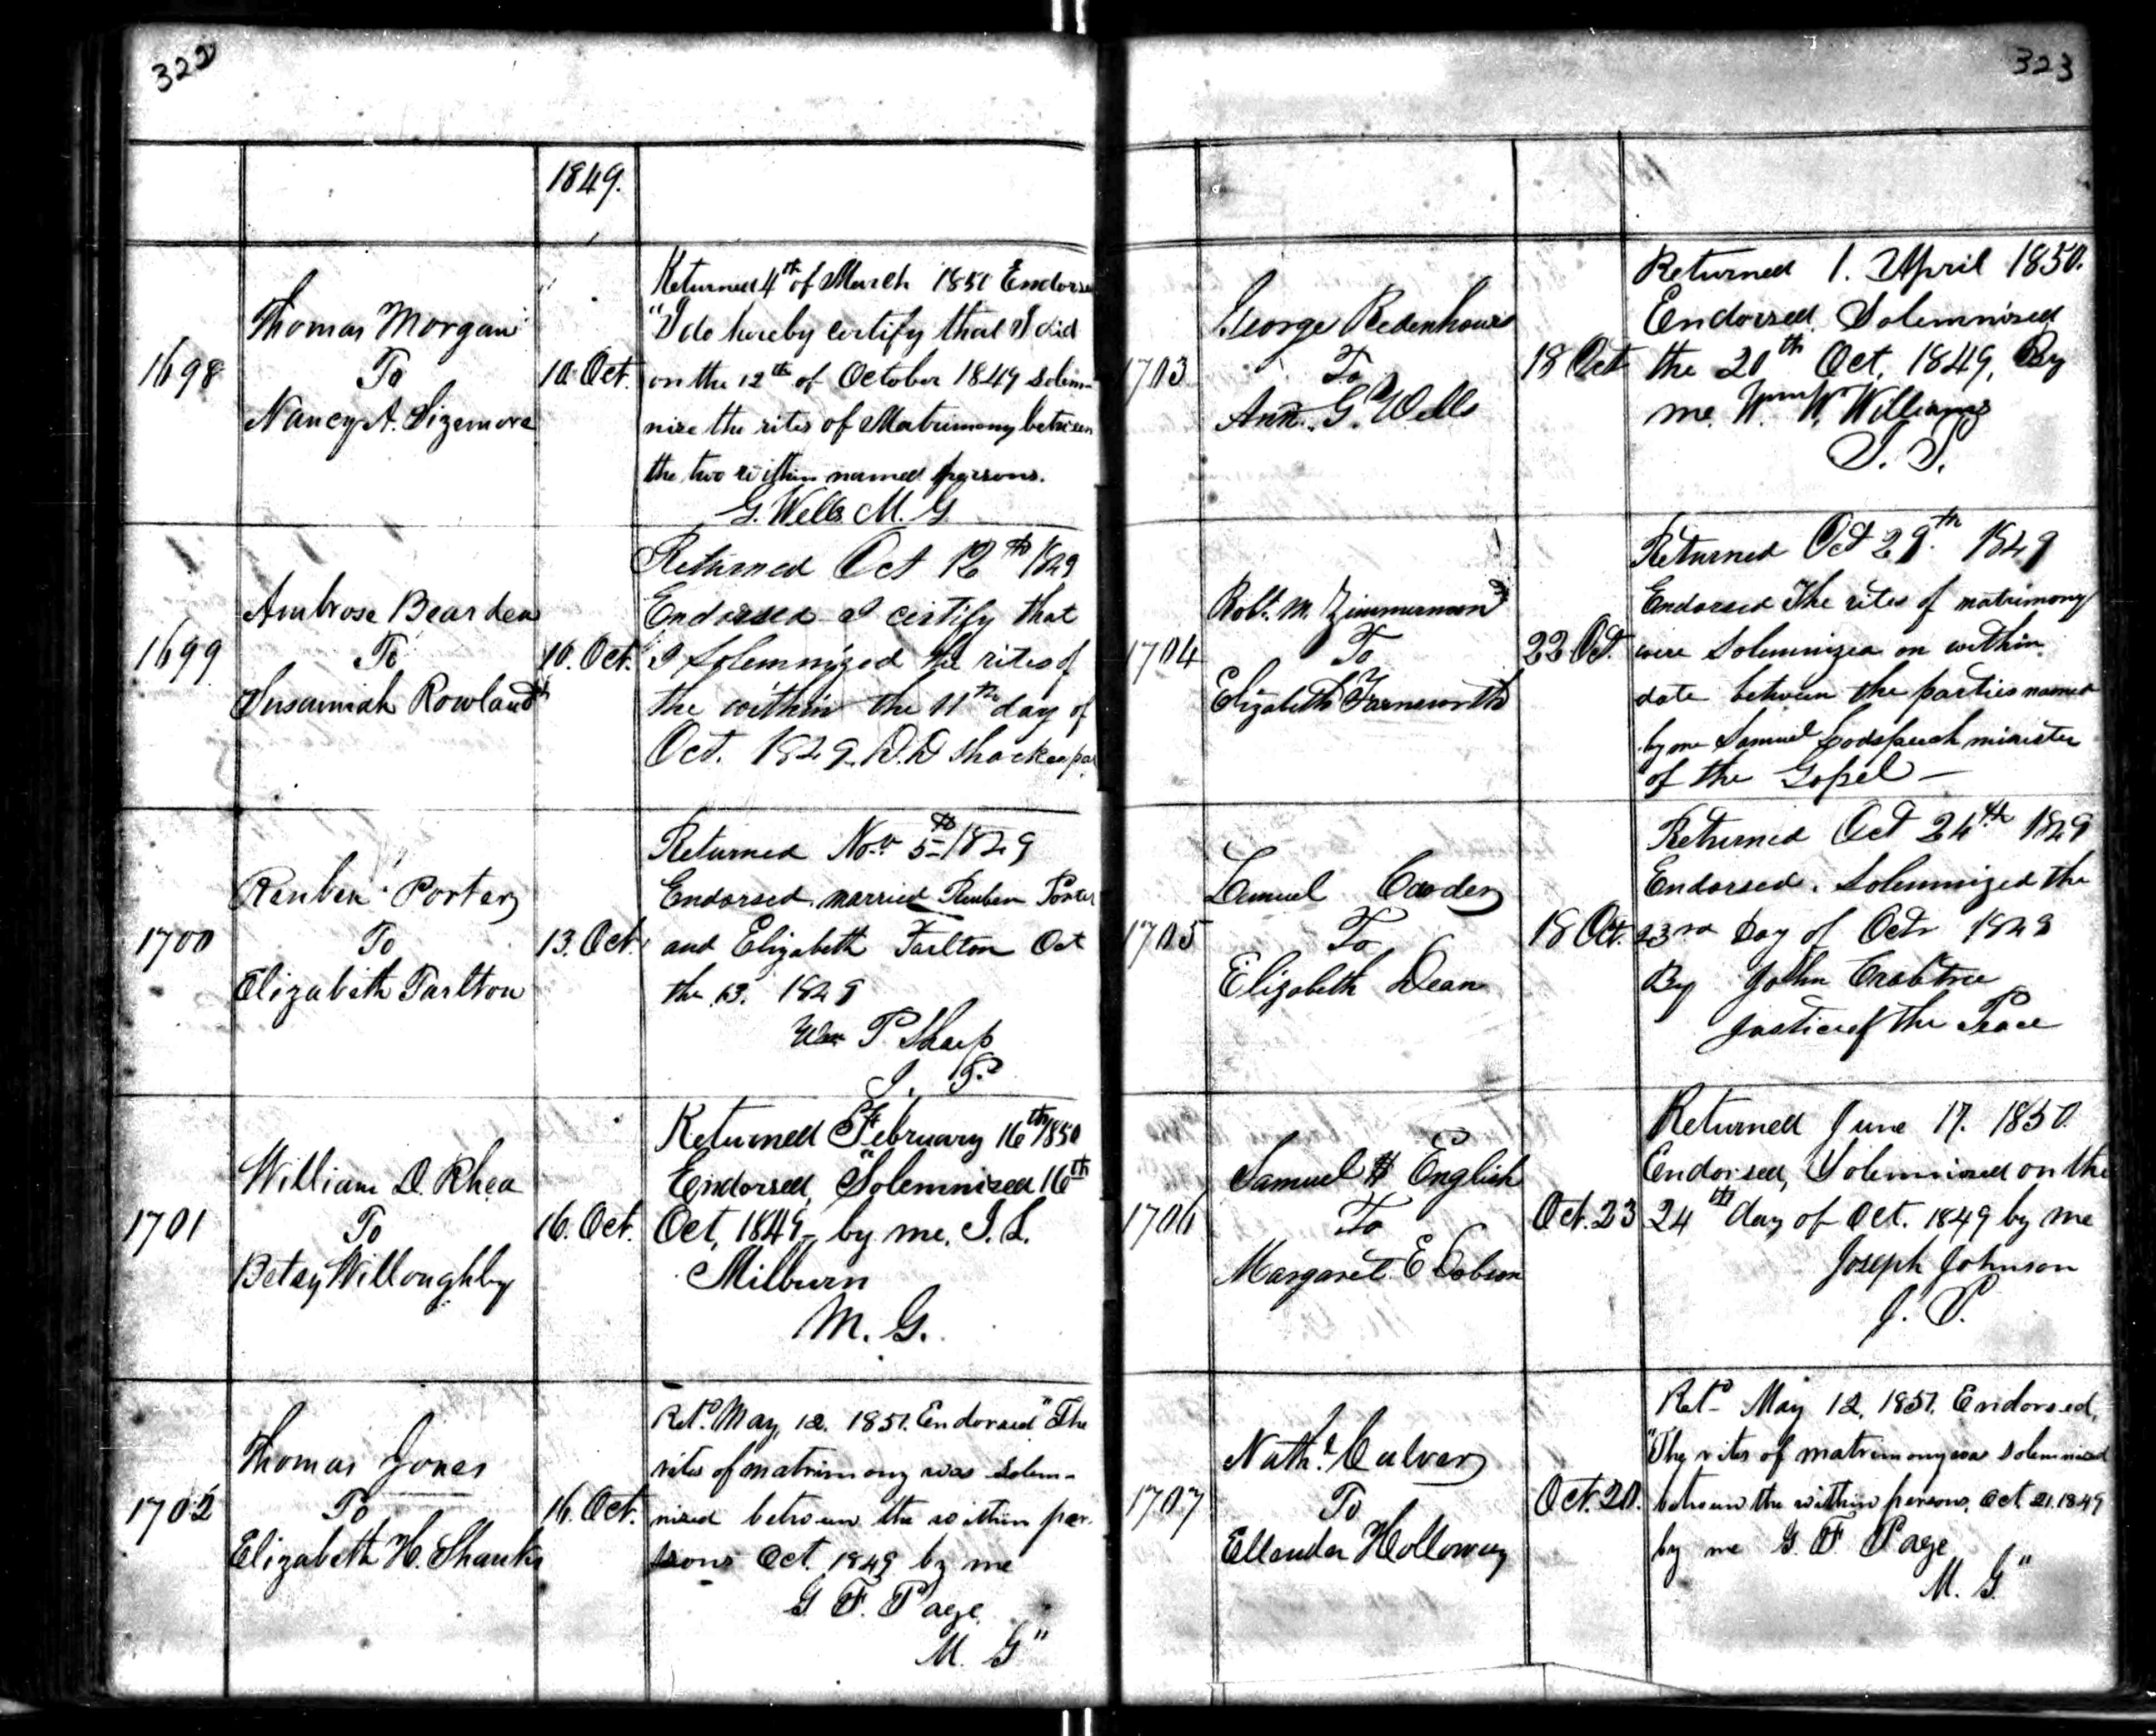 322
1849.
1698
Thomas Morgan
To
Nancy A. Sizemore
10. Oct.
Returned 4th of March 1850 Endorsed
"I do hereby certify that I did
on the 12th of October 1849 solem-
nize the rites of Matrimony between
the two within named persons.
G. Wells M. G.
1699
Ambrose Bearden
To
Susannah Rowland
10. Oct.
Returned Oct 12th 1849
Endorsed I certify that
I Solemnized the rites of
the within the 11th day of
Oct. 1849. D. D
1700
Reuben Porter
To
Elizabeth Tarlton
13. Oct.
Returned Nov. 5th 1849
Endorsed, married Reuben Porter
and Elizabeth Tarlton Oct
the 13. 1849
Wm P. Sharp
J. P.
1701
William D. Rhea
To
Betsy Willoughby
16. Oct.
Returned February 16th 1850
Endorsed, "Solemnized 16th
Oct, 1849, by me, J. L.
Milburn
M. G.
1702
Thomas Jones
To
Elizabeth H. Shanks
16. Oct.
Retd. May, 12. 1851. Endorsed "The
rites of matrimony was solem-
nized between the within per-
sons Oct. 1849 by me
G. F. Page
M. G"
323
1703
George Redenhours
To
Ann. G. Wells
18 Oct
Returned 1. April 1850.
Endorsed, Solemnized
the 20th Oct, 1849, By
me. W. Williams
J. P.
1704
Robt. M. Zimmerman
To
Elizabeth Farnsworth
22 Oct.
Returned Oct 29th. 1849
Endorsed The rites of matrimony
were Solemnized on within
date between the parties named
by me Samuel minister
of the Gospel —
1705
Lemuel Cowden
To
Elizabeth Dean
18 Oct.
Returned Oct 24th 1849
Endorsed. Solemnized the
23rd Day of Octr 1849
By John Crabtree
Justice of the Peace
1706
Samuel English
To
Margaret E Dobson
Oct. 23
Returned June 17. 1850.
Endorsed, Solemnized on the
24th day of Oct. 1849 by me
Joseph Johnson
J. P.
1707
Nathl. Culver
To
Ellender Holloway
Oct. 20.
Retd May 12, 1851. Endorsed,
"The rites of matrimony was solemnized
between the within persons, Oct. 21. 1849
by me G. F. Page
M. G"